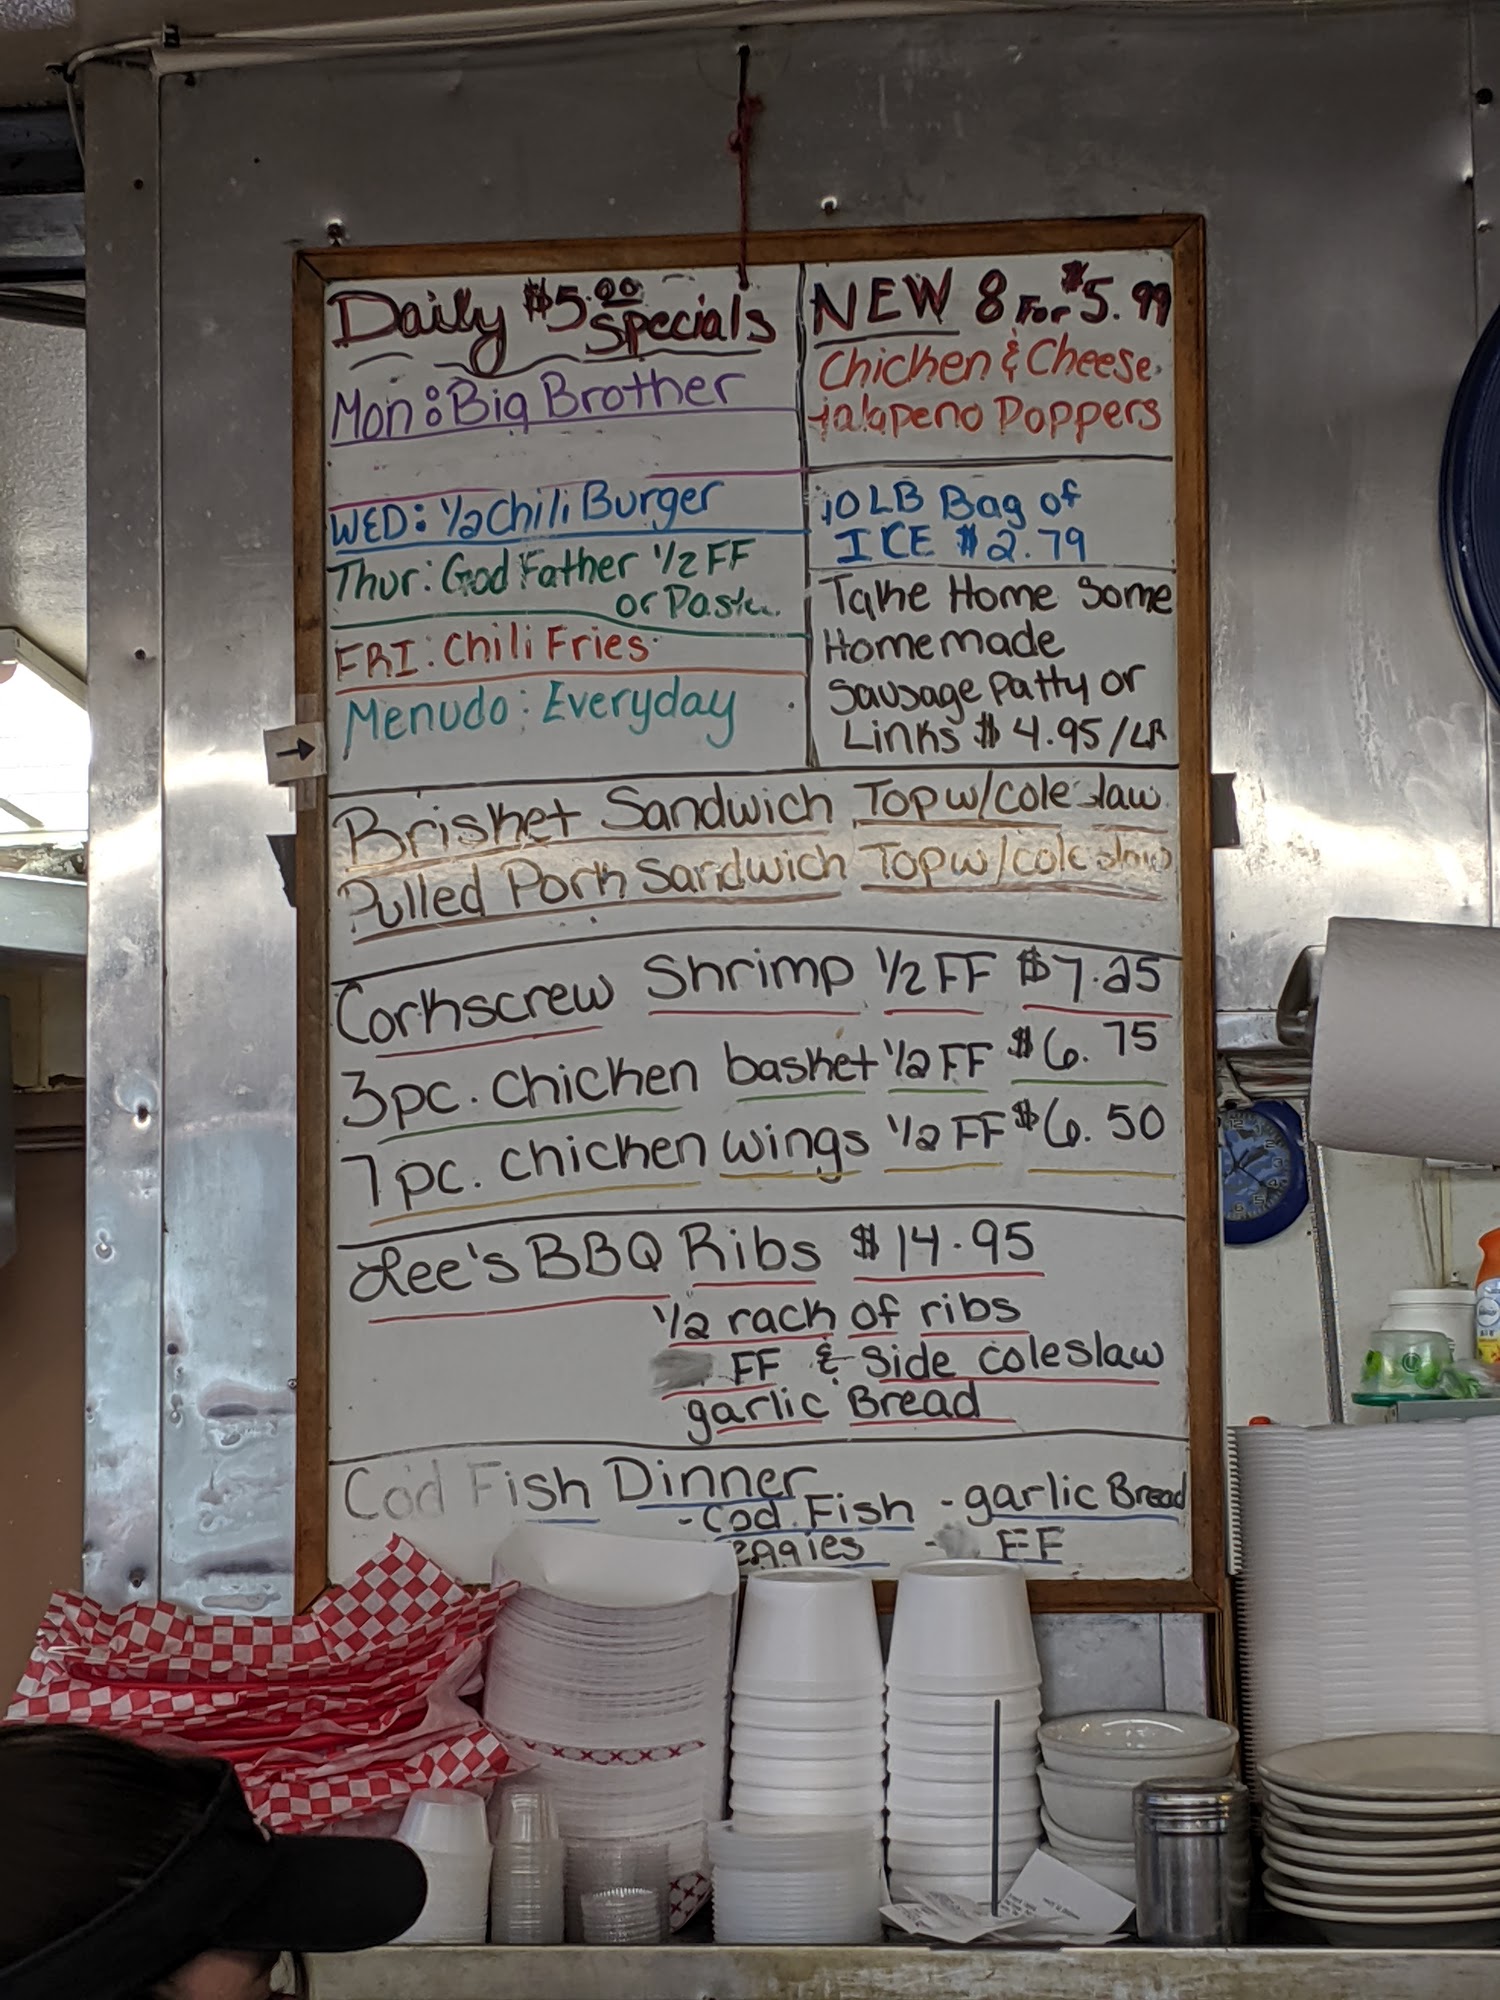 Daily $5.00 Specials
Mon: Big Brother
WED: 1/2 Chili Burger
Thur: God Father 1/2 FF
or Pastr
FRI: Chili Fries
Menudo: Everyday
NEW 8 For $5.99
Chicken & Cheese
jalapeno Poppers
10 LB Bag of
ICE $2.79
Take Home Some
Homemade
Sausage patty or
Links $4.95/LB
Brisket Sandwich Top w/cole slaw
Pulled Pork Sandwich Top w/cole slaw
Corkscrew Shrimp 1/2 FF $7.25
3pc. chicken basket 1/2 FF $6.75
7pc. chicken wings 1/2 FF $6.50
Lee's BBQ Ribs $14.95
1/2 rack of ribs
FF & Side coleslaw
garlic Bread
Cod Fish Dinner
-Cod Fish -garlic Bread
- FF